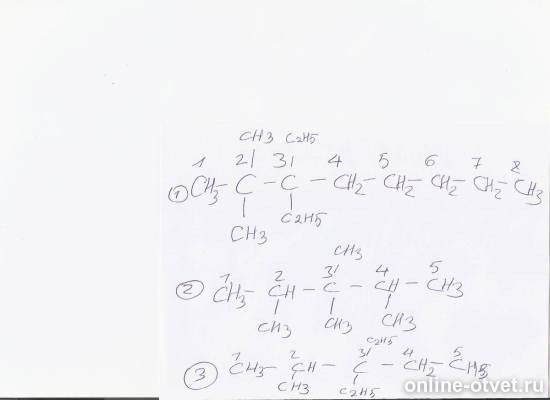 CH3 C2H5
1 2 3 4 5 6 7 8
① CH3 – C – C – CH2 – CH2 – CH2 – CH2 – CH3
CH3 C2H5
CH3
1 2 3 4 5
② CH3 – CH – C – CH – CH3
CH3 CH3 CH3
C2H5
1 2 3 4 5
③ CH3 – CH – C – CH2 –
CH3 C2H5
online-otvet.ru